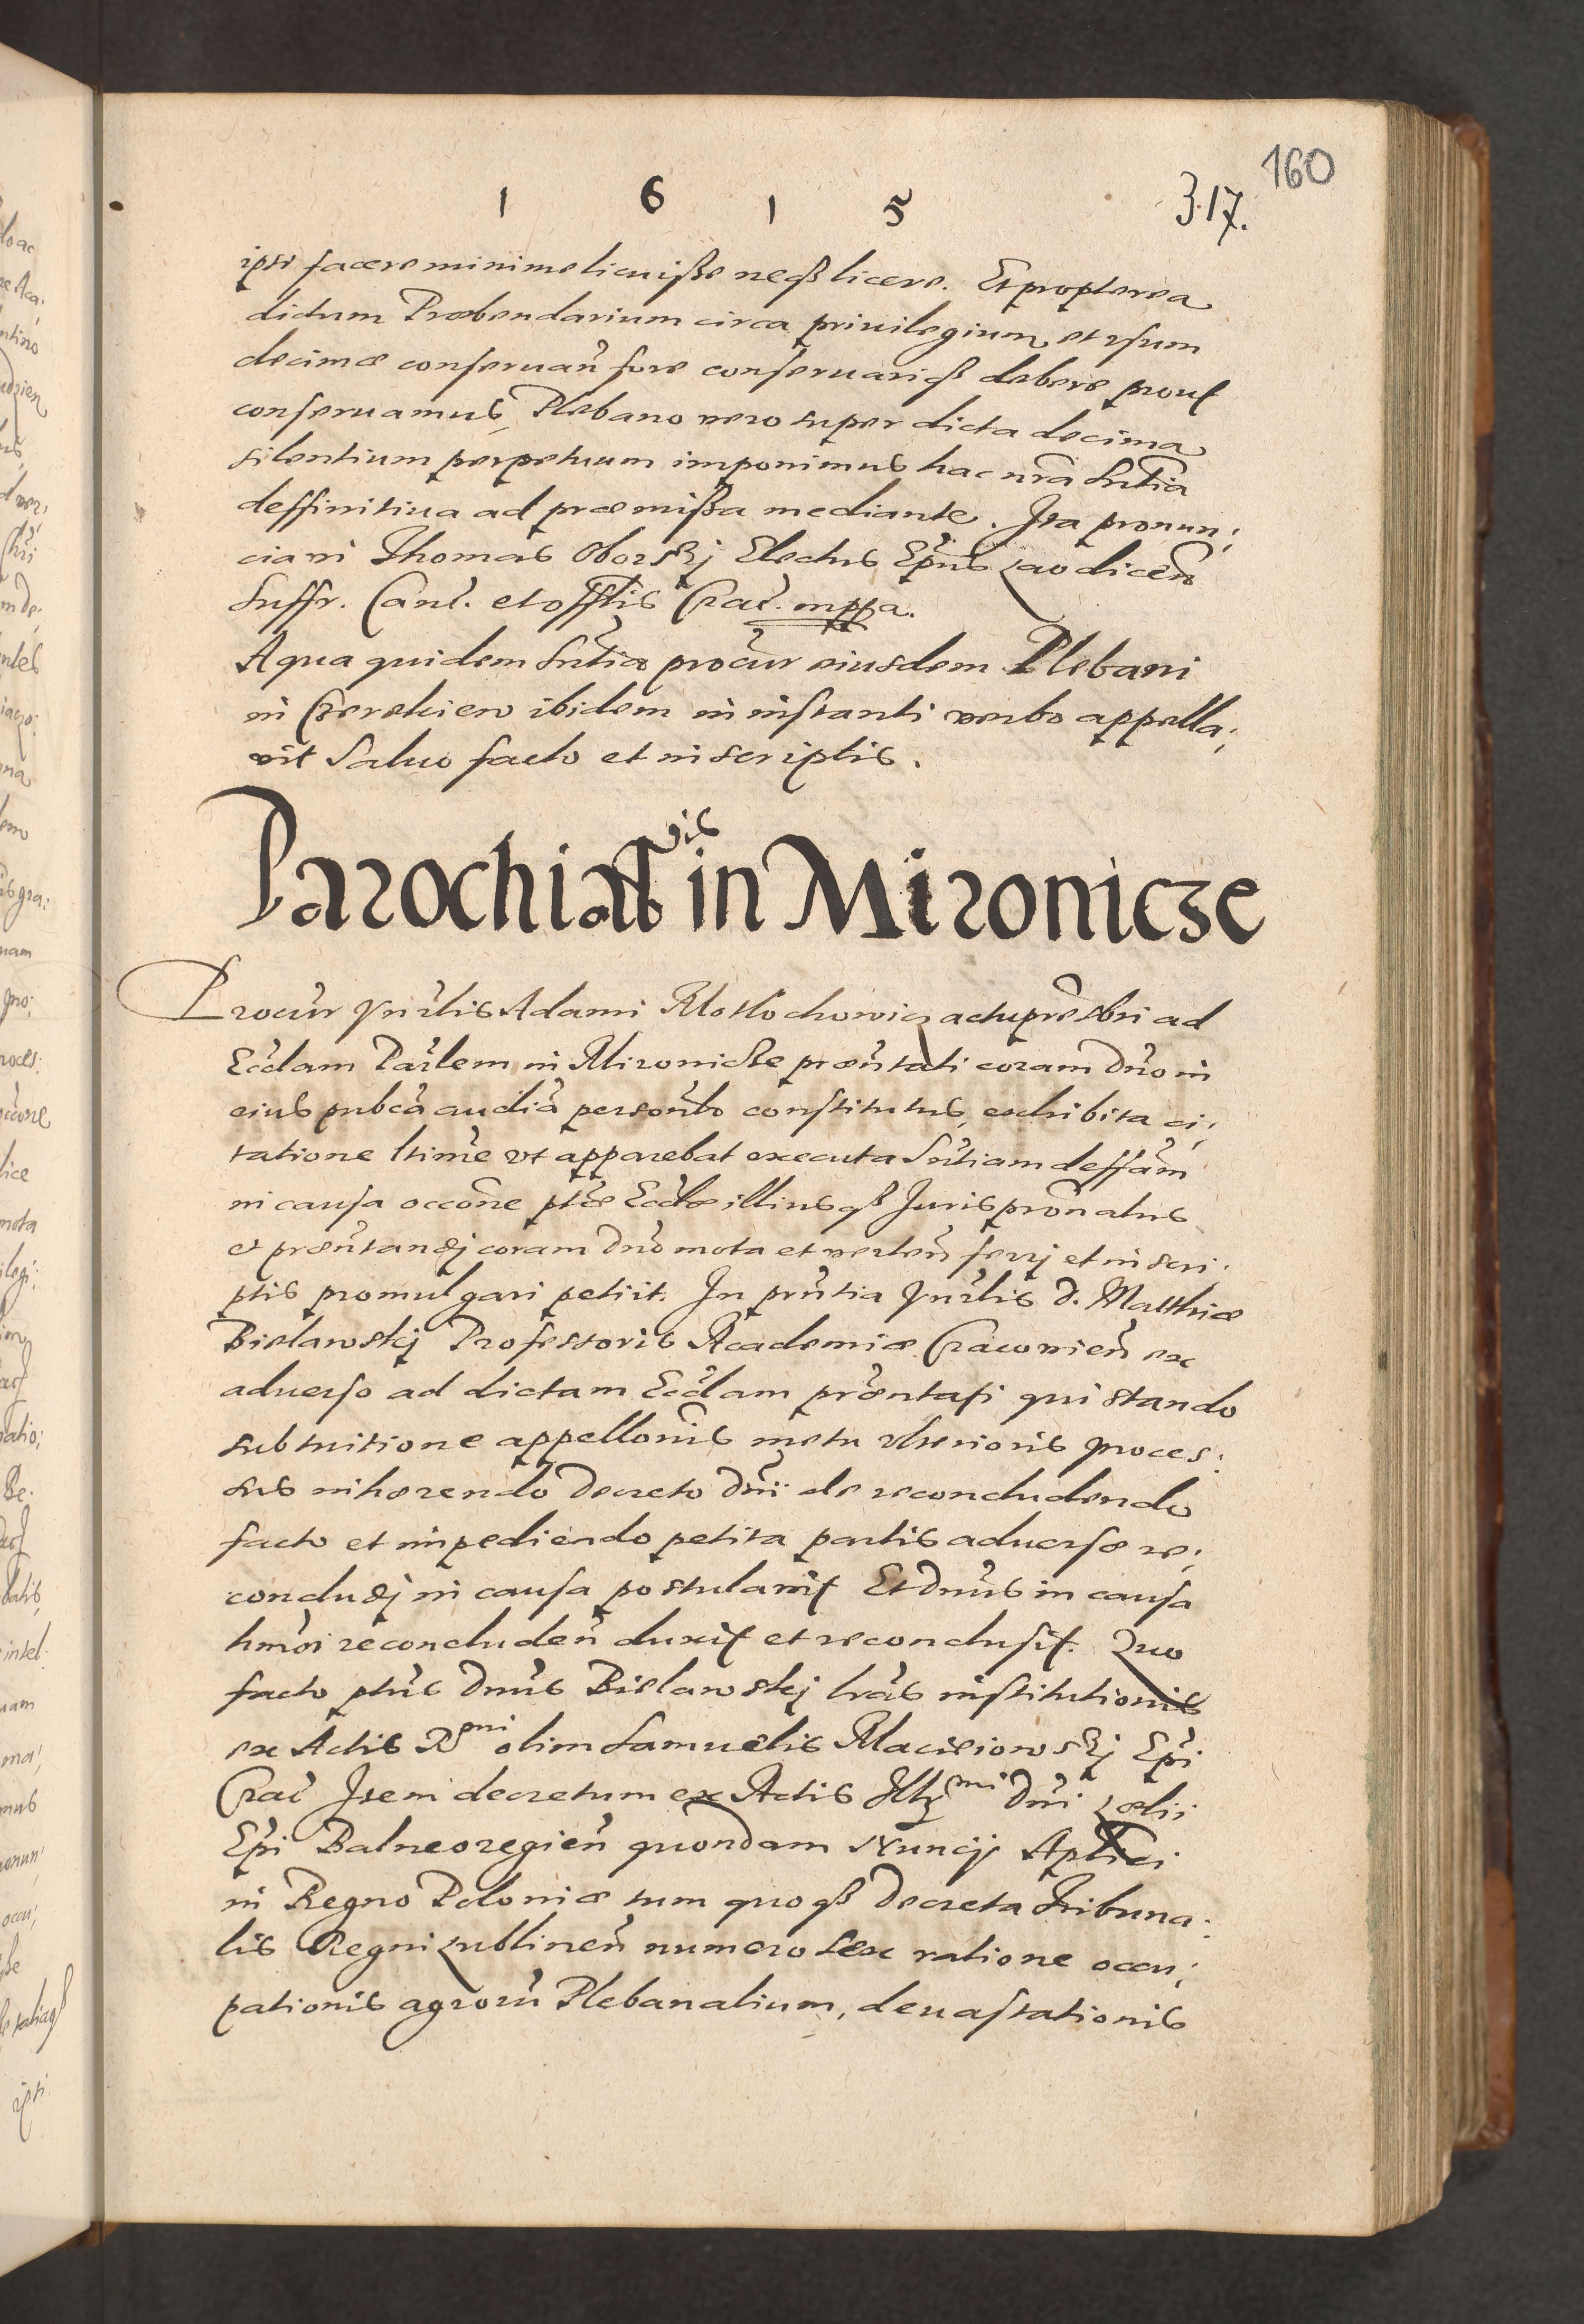 160
1 6 1 5
317.
ipsi facere minime licuisse neqз licere. Et propterea
dictum Præbendarium circa priuilegium et usum
decimæ conseruan̄ fore conseruariqз debere prout
conseruamus, Plebano vero super dicta decima
silentium perpetuum imponimus hac nr̄a sn̄tia
deffinitiua ad præmissa mediante. Ita pronun:
ciaui Thomas Oborskj Electus Ep̄us Laodicen̄
Suffr. Can̄. et offlis Crac̄. mppa.
A qua quidem sn̄tia procūr eiusdem Plebani
in Czerekiew ibidem in instanti verbo appella:
vit Saluo facto et in scriptis.
Parochialis in Mironicze
Procūr Vn̄rlis Adami actu prēsb̄ri ad
Eccl̄am Parl̄em in Mironicze præn̄tati coram Dn̄o in
eius pub̄ca audiā personl̄r constitutus, exhibita ci:
tatione l̄time ut apparebat executa Sn̄tiam deffām
in causa occōne pt̄æ Eccl̄æ illiusqз Juris pron̄atus
et præn̄tandj coram Dn̄o mota et verten̄ ferrj et in scri:
ptis promulgari petiit. In prn̄tia Vn̄rlis D. Matthiæ
Bielawskj Professoris Academiæ Cracouien̄ ex
aduerso ad dictam Eccl̄am præn̄tati qui stando
sub tuitione appellōnis metu ulterioris proces:
sus inhærendo Decreto Dn̄i de reconcludendo
facto et impediendo petita partis aduersæ re:
concludj in causa postulauit Et Dn̄us in causa
hm̄oi reconcluden̄ duxit et reconclusit. Quo
facto pt̄us Dn̄us Bielawskj lr̄as institutionis
ex Actis Rmi olim Samuelis Macieiowskj Ep̄i
Crac̄ Item decretum ex Actis Illmi Dn̄i Lælii
Ep̄i Balneoregien̄ quondam Nuncij Aplici
in Regno Poloniæ tum quoqз Decreta Tribuna:
lis Regni Lublinen̄ numero sex ratione occu:
pationis agrorū Plebanalium, deuastationis